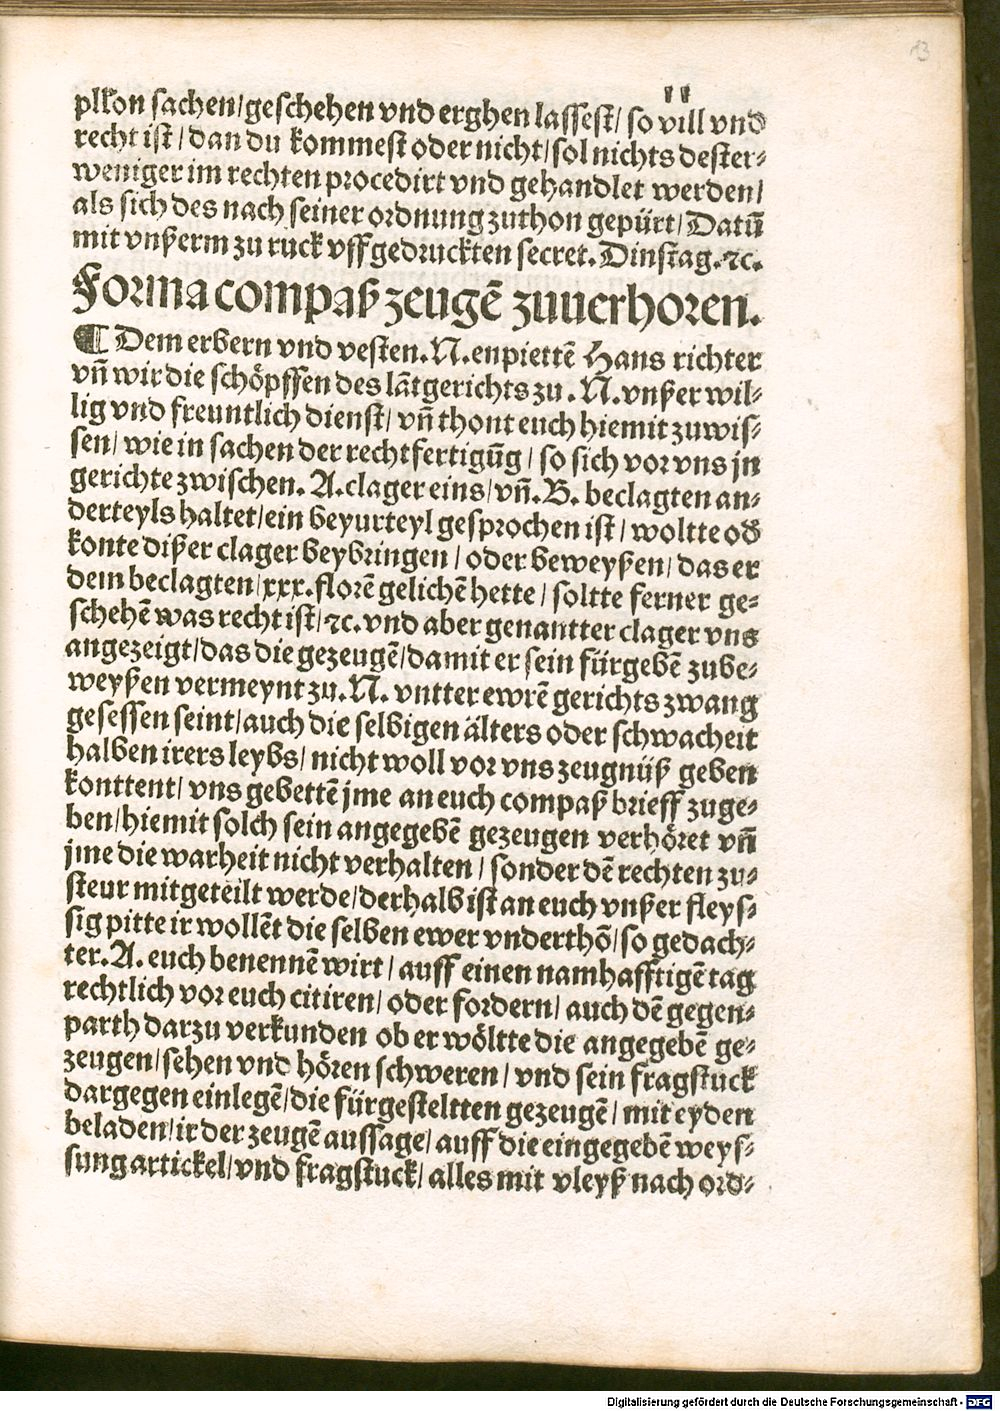 13
plkon sachen/geschehen vnd erghen lassest/ so vill vnd
recht ist/dan du kommest oder nicht/sol nichts dester⸗
weniger im rechten procedirt vnd gehandlet werden/
als sich des nach seiner ordnung zuthon gepürt/Datū
mit vnßerm zu ruck vffgedruckten secret. Dinstag.ꝛc.
Forma compaß zeugē zuuerhoren.
¶ Dem erbern vnd vesten.N.enpiettē Hans richter
vn̄ wir die schöpffen des lātgerichts zu.N.vnßer wil⸗
lig vnd freuntlich dienst/vn̄ thont euch hiemit zuwis⸗
sen/wie in sachen der rechtfertigūg/so sich vor vns jn
gerichte zwischen.A.clager eins/vn̄.B.beclagten an⸗
derteyls haltet/ein beyurteyl gesprochen ist/woltte od
konte dißer clager beybringen/oder beweyßen/das er
dem beclagten/xxx.florē gelichē hette/soltte ferner ge⸗
schehē was recht ist/ꝛc.vnd aber genantter clager vns
angezeigt/das die gezeugē/damit er sein fürgebē zube⸗
weyßen vermeynt zu.N.vntter ewrē gerichts zwang
gesessen seint/auch die selbigen älters oder schwacheit
halben irers leybs/nicht woll vor vns zeugnüß geben
konttent/vns gebettē jme an euch compaß brieff zuge⸗
ben/hiemit solch sein angegebē gezeugen verhöret vn̄
jme die warheit nicht verhalten/sonder dē rechten zu⸗
steur mitgeteilt werde/derhalb ist an euch vnßer fleys⸗
sig pitte ir wollēt die selben ewer vnderthō/so gedach⸗
ter.A.euch benennē wirt/auff einen namhafftigē tag
rechtlich vor euch citiren/oder fordern/auch dē gegen⸗
parth darzu verkunden ob er wöltte die angegebē ge⸗
zeugen/sehen vnd hören schweren/vnd sein fragstuck
dargegen einlegē/die fürgesteltten gezeugē/mit eyden
beladen/ir der zeugē aussage/auff die eingegebē weys⸗
sung artickel/vnd fragstuck/alles mit vleyß nach ord⸗
Digitalisierung gefördert durch die Deutsche Forschungsgemeinschaft - DFG